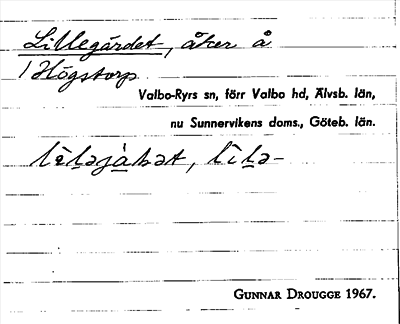 Lillegärdet, åker å
1 Högstorp
Valbo-Ryrs sn, förr Valbo hd, Älvsb. län,
nu Sunnervikens doms., Göteb. län.
GUNNAR DROUGGE 1967.